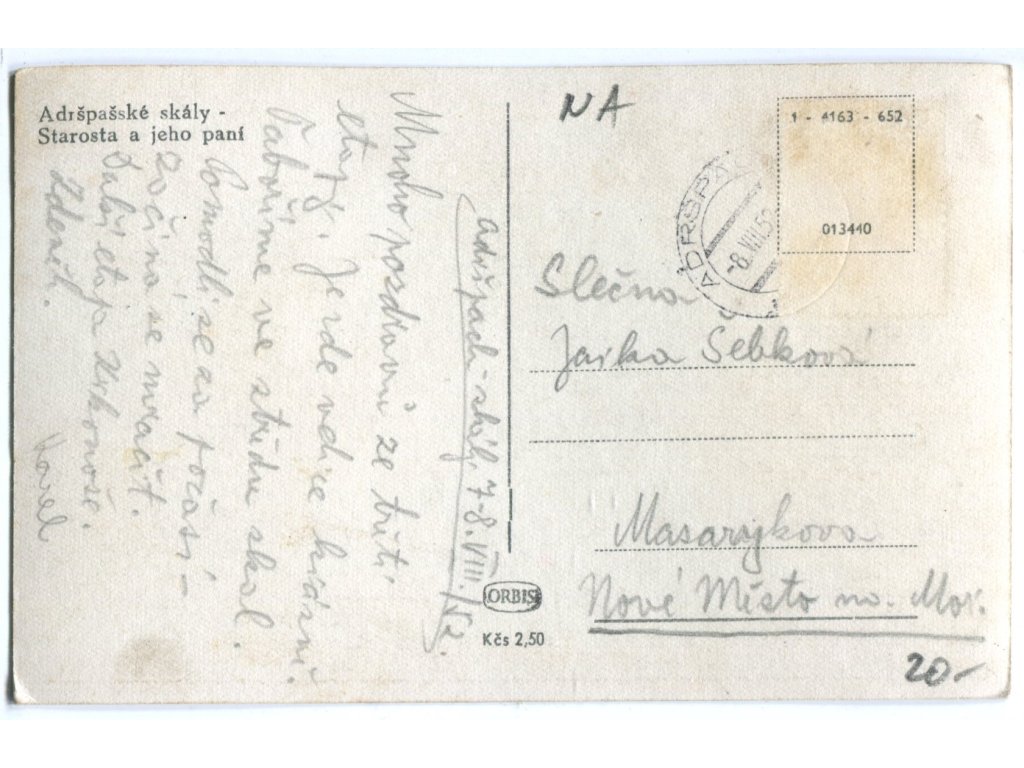 Adršpašské skály -
Starosta a jeho paní
NA
1 - 4163 - 652
013440
ADRŠPA
-8.VIII.52
Adršpach - skály. 7-8. VIII. 52.
Mnoho pozdravů ze třetí
etapy. Je zde velice krásně.
Táboříme ve středu skal.
Pomodli se za počasí -
začíná se mračit.
Další etapa Krkonoše.
Zdeněk.
Slečna
Jarka Šebková
Masarykova
Nové Město na. Mor.
ORBIS
Kčs 2,50
20-